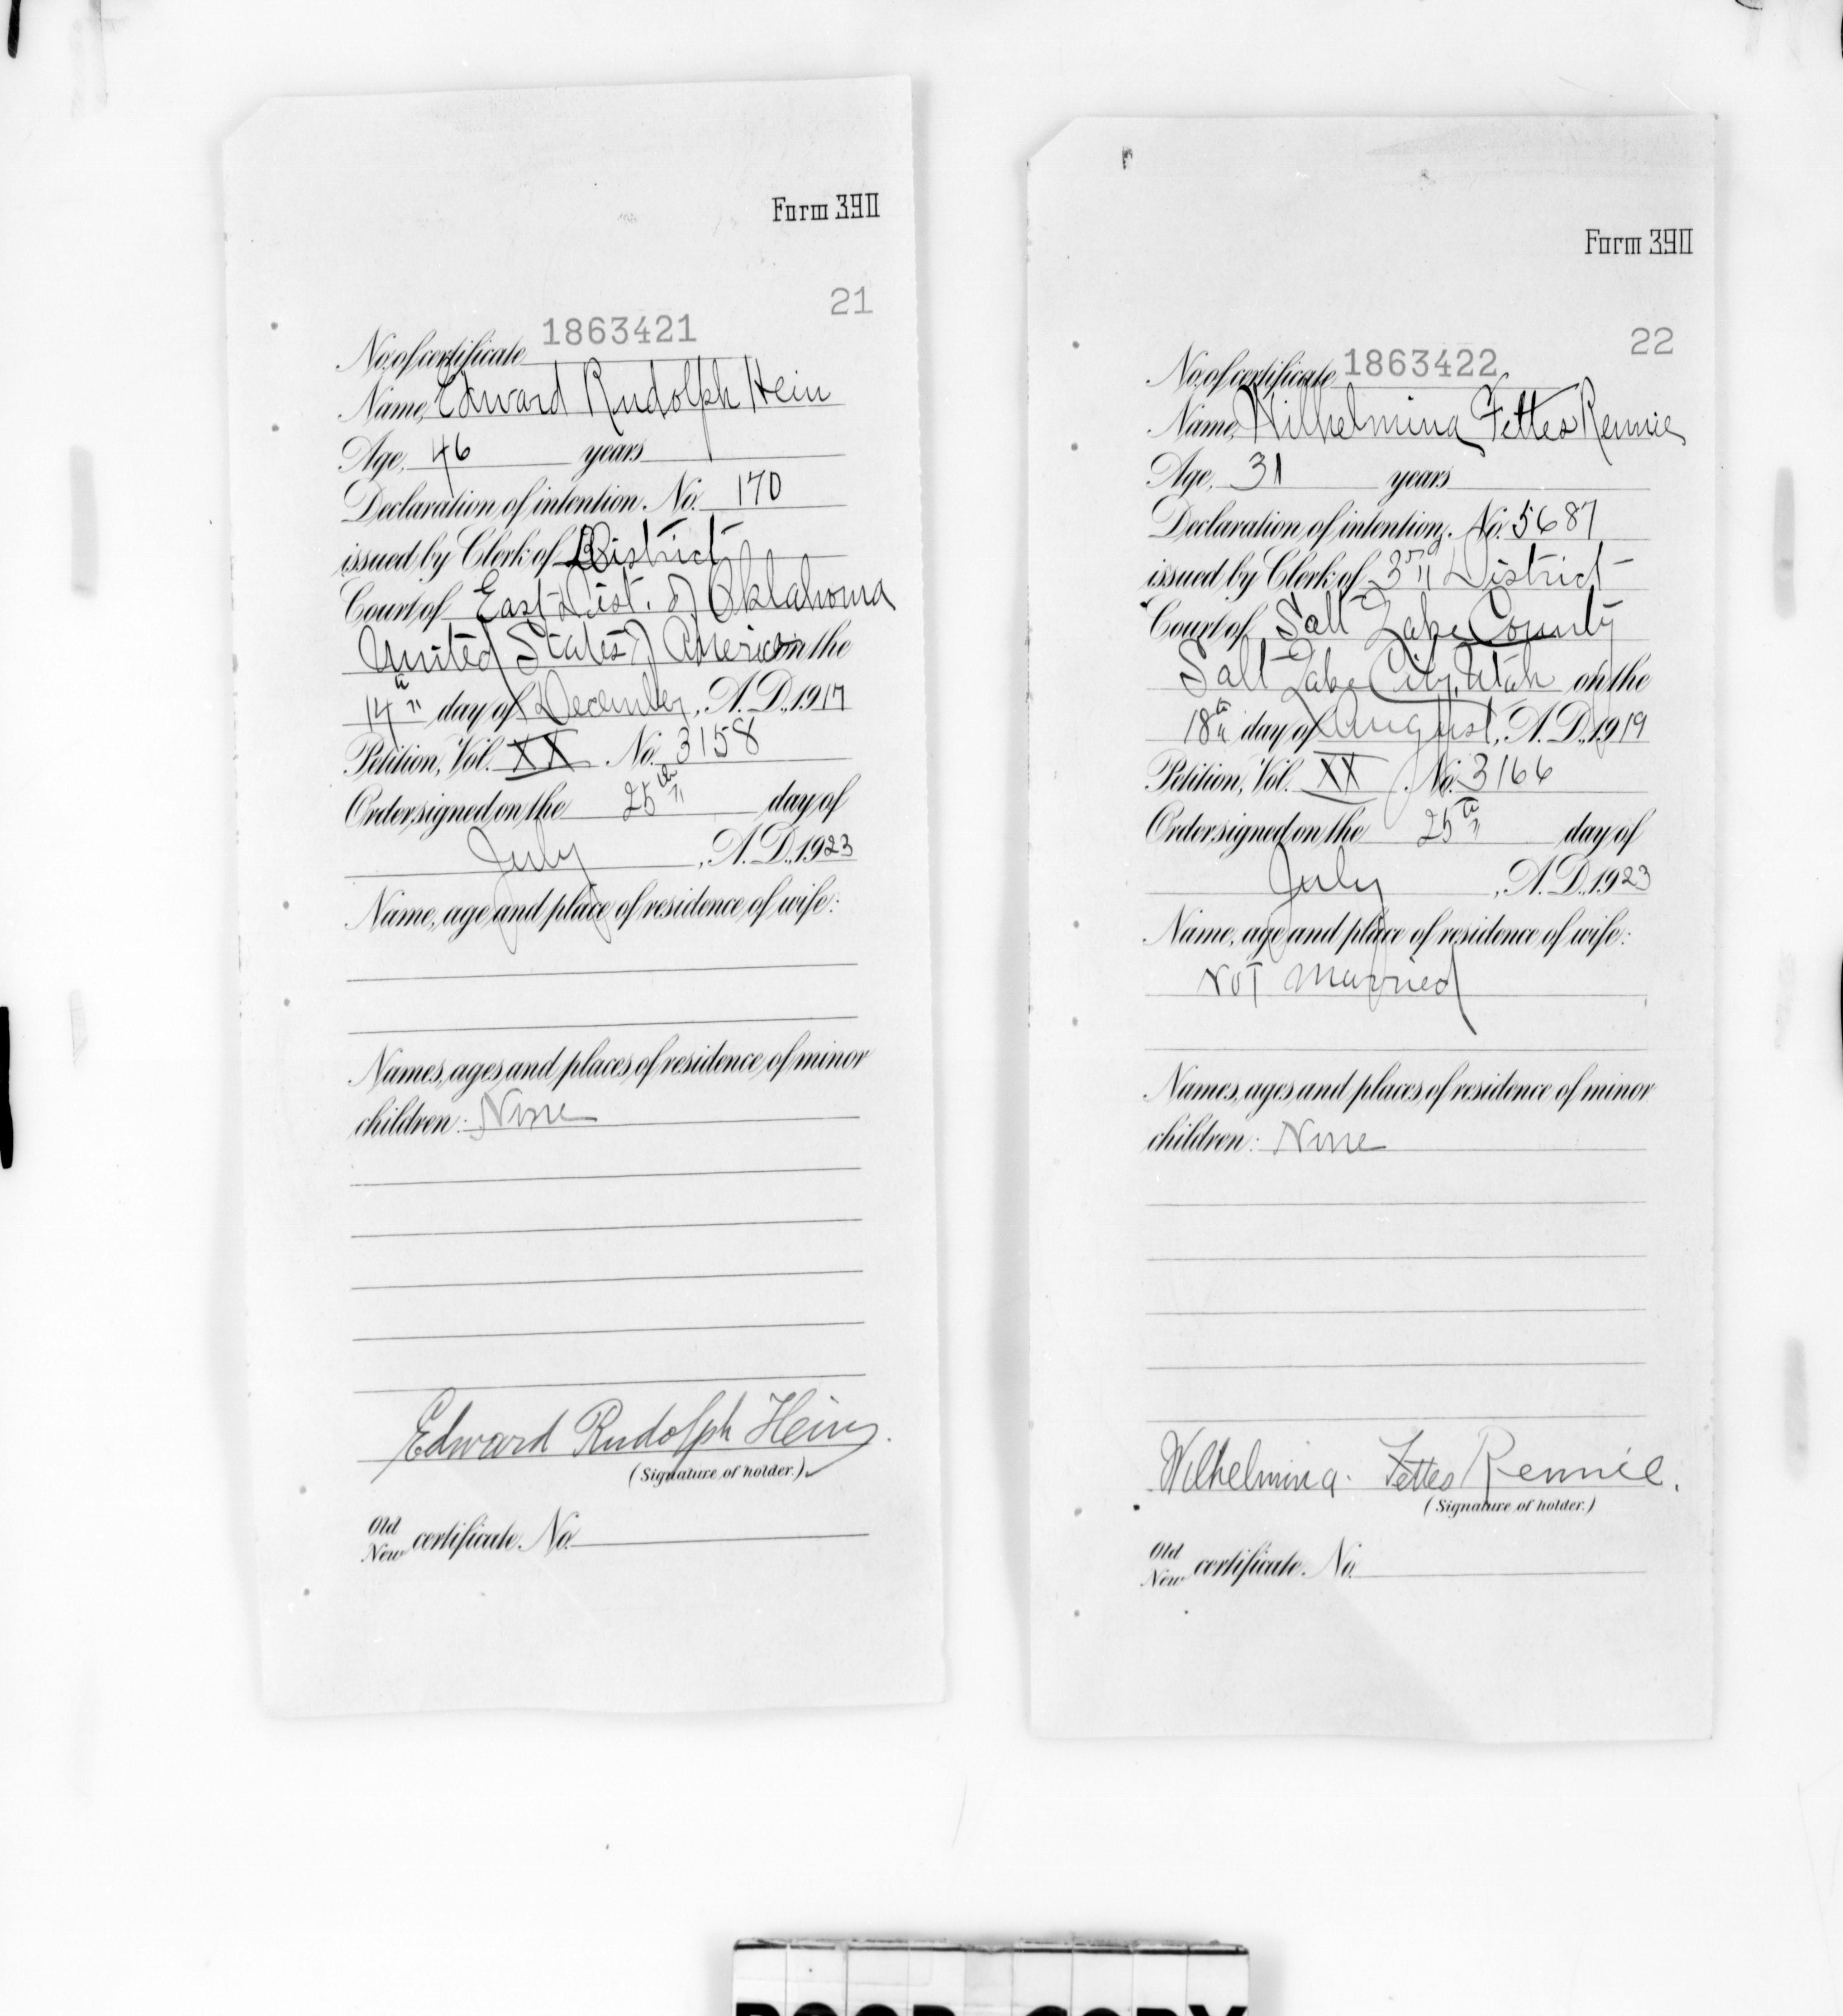 Form 390
21
No. of certificate 1863421
Name, Edward Rudolph Hein
Age, 46 years
Declaration of intention. No. 170
issued by Clerk of District
Court of East Dist. of Oklahoma
United States of America on the
14th day of December, A.D., 1917
Petition, Vol. XX No. 3158
Order signed on the 25th day of
July, A.D., 1923
Name, age and place of residence of wife:
Names, ages and places of residence of minor
children: None
Edward Rudolph Hein.
(Signature of holder.)
Old
New certificate. No.
Form 390
22
No. of certificate 1863422
Name, Wilhelmina Fettes Rennie
Age, 31 years
Declaration of intention. No. 5687
issued by Clerk of 3rd District
Court of Salt Lake County
Salt Lake City, Utah on the
18th day of August, A.D., 1919
Petition, Vol. XX No. 3166
Order signed on the 25th day of
July, A.D., 1923
Name, age and place of residence of wife:
Not Married
Names, ages and places of residence of minor
children: None
Wilhelmina. Fettes Rennie.
(Signature of holder.)
Old
New certificate. No.
POOR COPY